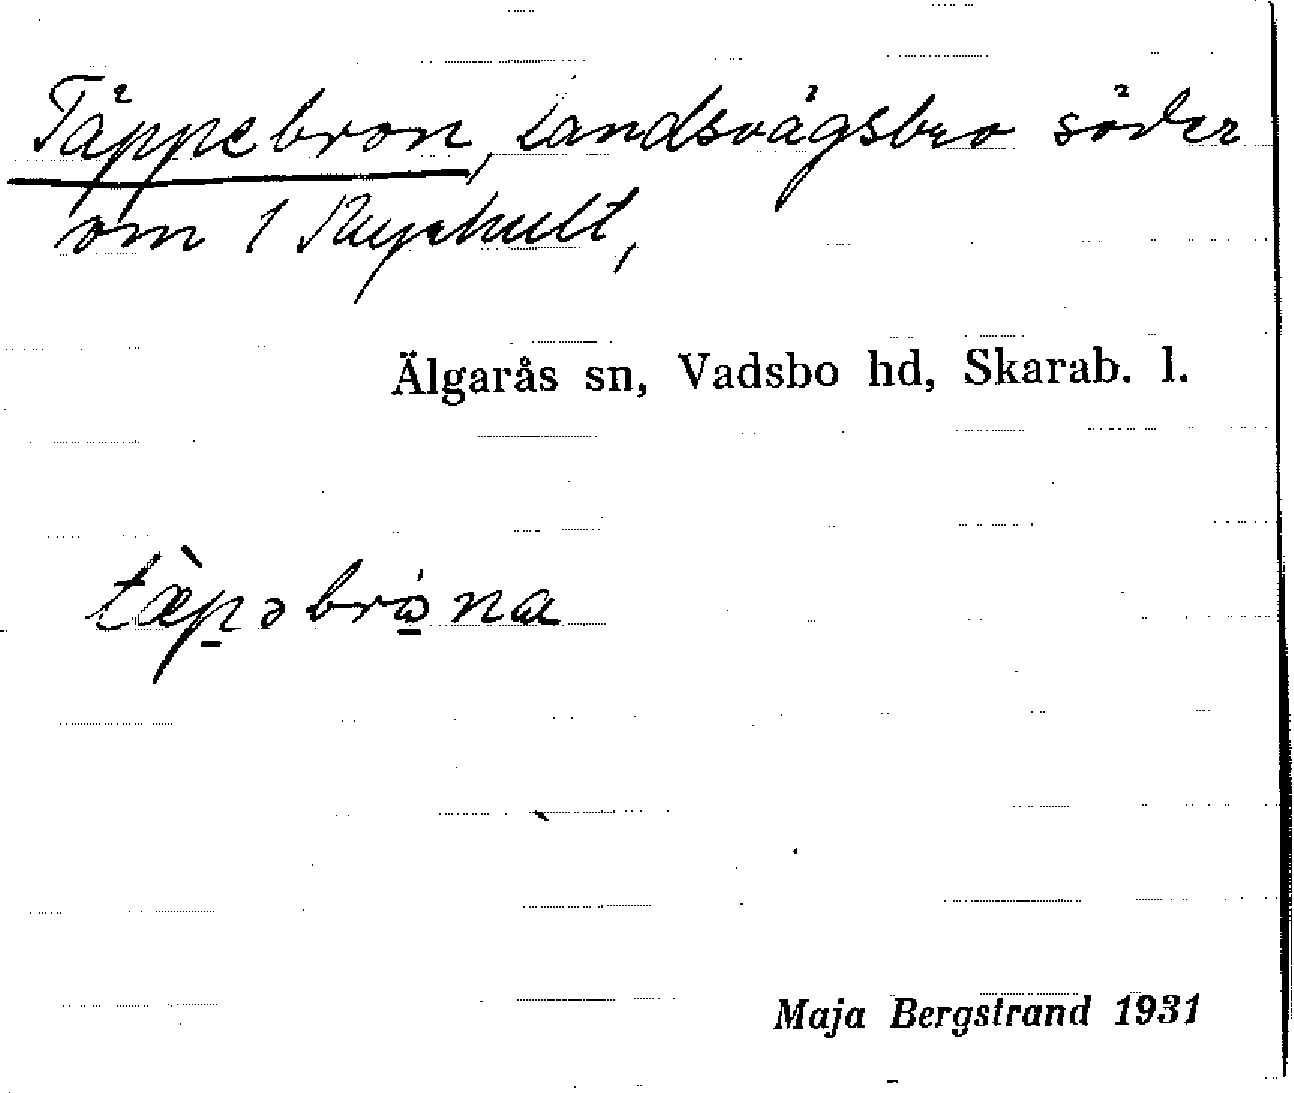 Täppebron, Landsvägsbro söder
om 1 Ryehult,
Älgarås sn, Vadsbo hd, Skarab. l.
tæ̀p̱əbrò̱na
Maja Bergstrand 1931